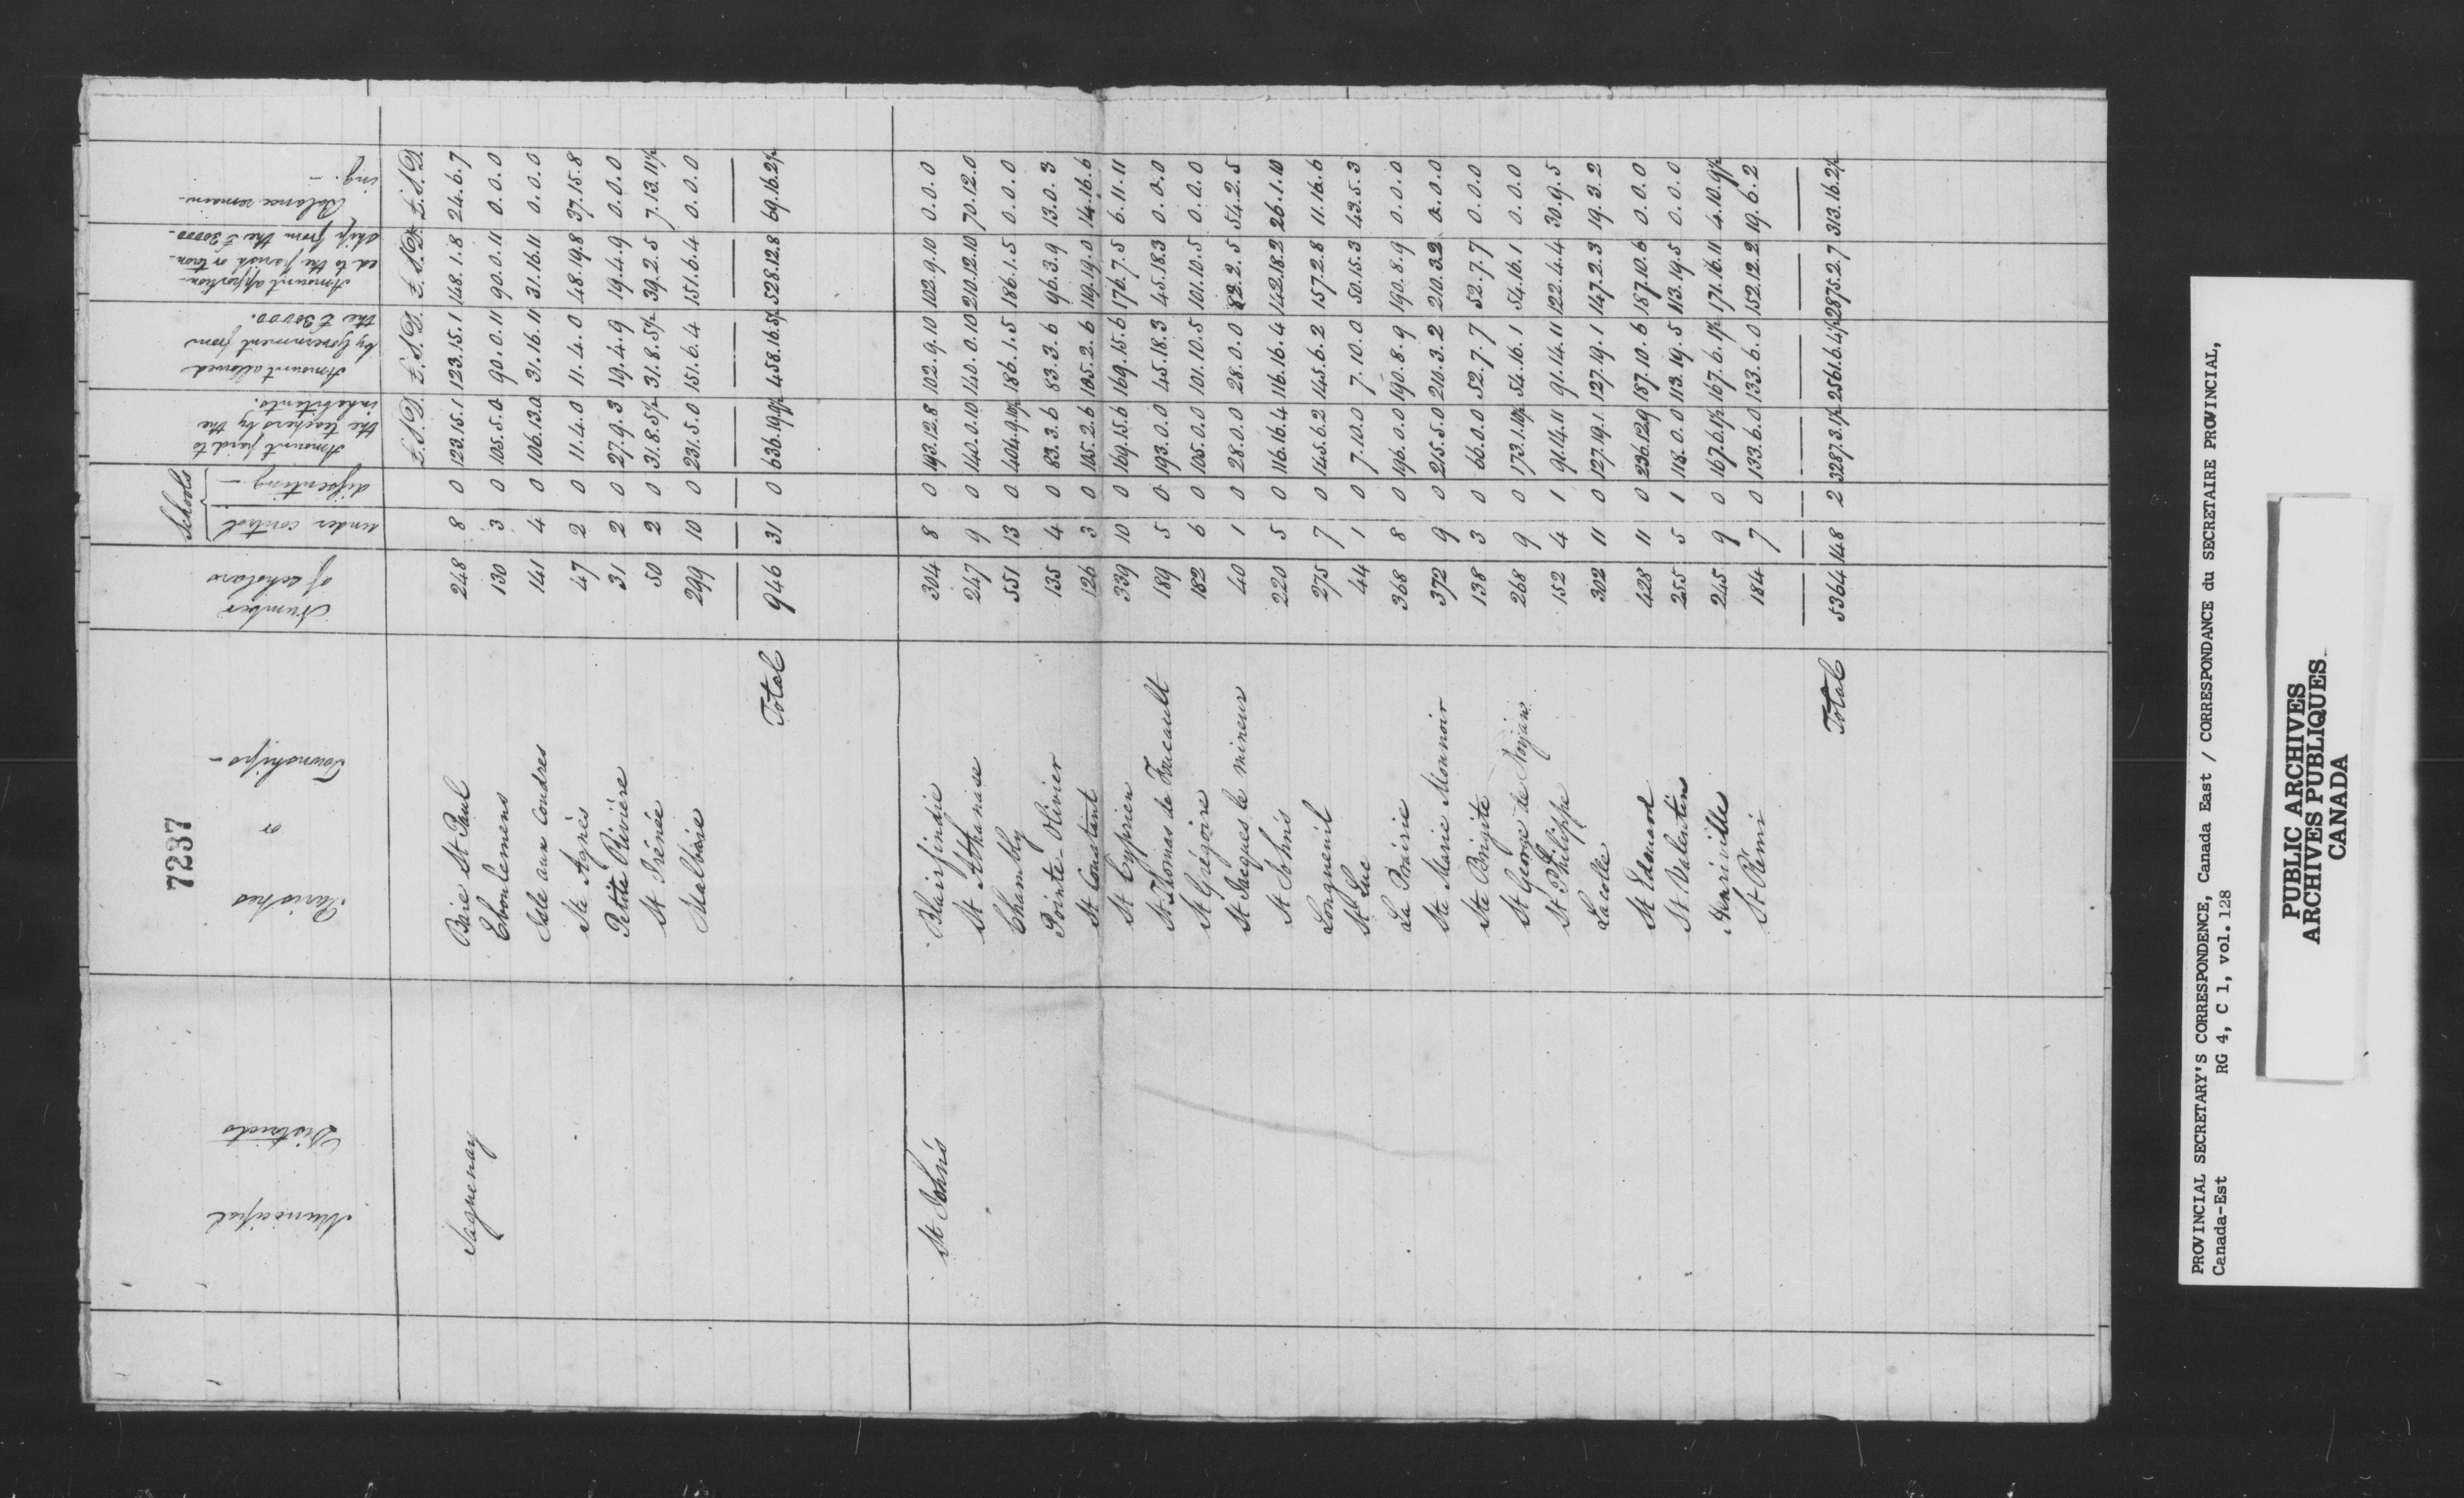 7237
Municipal Districts
Parishes or Townships -
Number of scholars
Schools
under control
dissenting -
Amount paid to the teachers by the inhabitants.
Amount allowed by Government from the £30000.
Amount apportioned to the parish or township from the £30000.
Balance remaining. -
£. S. D. £. S. D. £. S. D. £. S. D.
Saguenay Baie St Paul 248 8 0 123.15.1 123.15.1 148.1.8 24.6.7
Eboulemens 130 3 0 105.5.0 90.0.11 90.0.11 0.0.0
Isle aux Coudres 141 4 0 106.13.0 31.16.11 31.16.11 0.0.0
Ste Agnès 47 2 0 11.4.0 11.4.0 48.19.8 37.15.8
Petite Rivière 31 2 0 27.9.3 19.4.9 19.4.9 0.0.0
St Irénée 50 2 0 31.8.5½ 31.8.5½ 39.2.5 7.13.11½
Malbaie 299 10 0 231.5.0 151.6.4 151.6.4 0.0.0
Total 946 31 0 636.19.9½ 458.16.5½ 528.12.8 69.16.2½
St John's Blairfindie 304 8 0 193.12.8 102.9.10 102.9.10 0.0.0
St Athanase 247 9 0 140.0.10 140.0.10 210.12.10 70.12.0
Chambly 551 13 0 404.9.10½ 186.1.5 186.1.5 0.0.0
Pointe Olivier 135 4 0 83.3.6 83.3.6 96.3.9 13.0.3
St Constant 126 3 0 105.2.6 105.2.6 119.19.0 14.16.6
St Cyprien 339 10 0 169.15.6 169.15.6 176.7.5 6.11.11
St Thomas de Foucault 189 5 0 193.0.0 45.18.3 45.18.3 0.0.0
St Grégoire 182 6 0 105.0.0 101.10.5 101.10.5 0.0.0
St Jacques le mineur 40 1 0 28.0.0 28.0.0 82.2.5 54.2.5
St John's 220 5 0 116.16.4 116.16.4 142.18.2 26.1.10
Longueuil 275 7 0 145.6.2 145.6.2 157.2.8 11.16.6
St Luc 44 1 0 7.10.0 7.10.0 50.15.3 43.5.3
La Prairie 368 8 0 196.0.0 190.8.9 190.8.9 0.0.0
Ste Marie Monnoir 372 9 0 215.5.0 210.3.2 210.3.2 0.0.0
Ste Brigite 138 3 0 66.0.0 52.7.7 52.7.7 0.0.0
St George de Noyan 268 9 0 173.1.10½ 54.16.1 54.16.1 0.0.0
St Philippe 152 4 1 91.14.11 91.14.11 122.4.4 30.9.5
Lacolle 302 11 0 127.19.1 127.19.1 147.2.3 19.3.2
St Edouard 428 11 0 236.12.9 187.10.6 187.10.6 0.0.0
St Valentin 255 5 1 118.0.0 113.19.5 113.19.5 0.0.0
Henriville 245 9 0 167.6.1½ 167.6.1½ 171.16.11 4.10.9½
St Rémi 184 7 0 133.6.0 133.6.0 152.12.2 19.6.2
Total 5364 148 2 3287.3.1½ 2561.6.4½ 2875.2.7 313.16.2½
PROVINCIAL SECRETARY'S CORRESPONDENCE, Canada East / CORRESPONDANCE du SECRETAIRE PROVINCIAL,
Canada-Est RG 4, C 1, vol. 128
PUBLIC ARCHIVES
ARCHIVES PUBLIQUES
CANADA